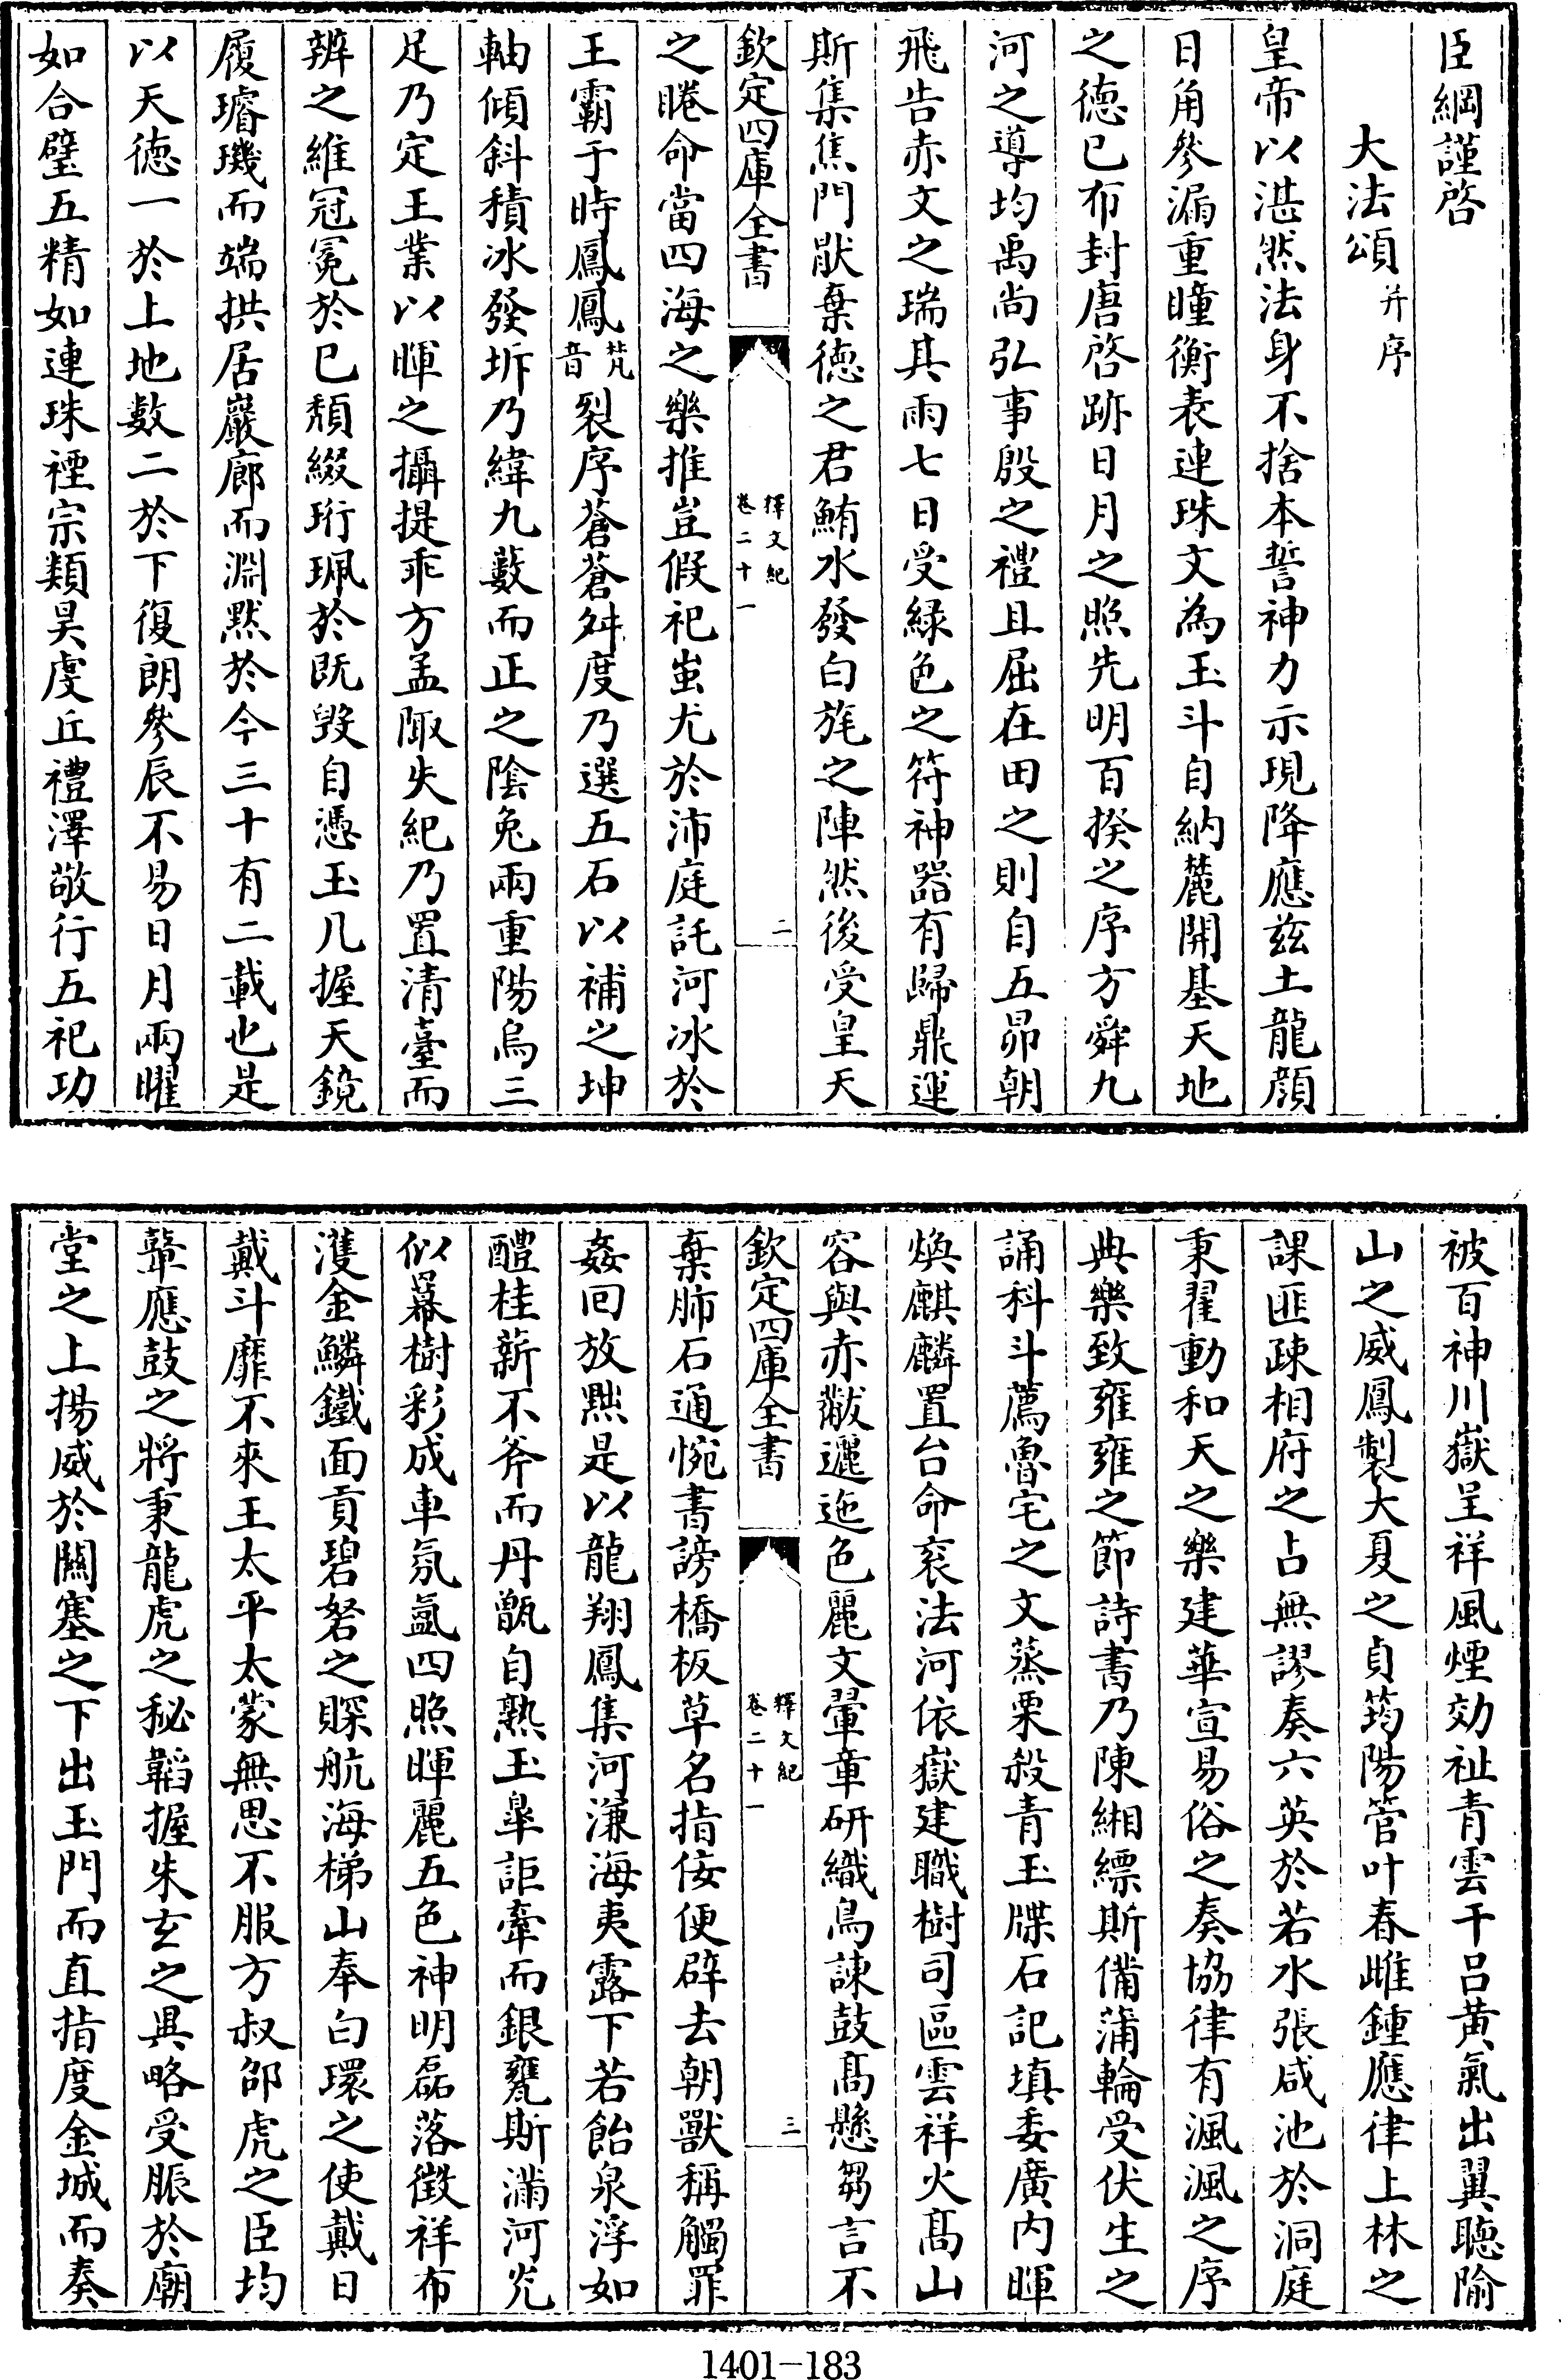 臣綱謹啓
大法頌并序
皇帝以湛然法身不捨本誓神力示現降應兹土龍顔
日角參漏重瞳衡表連珠文為玉斗自納麓開基天地
之徳已布封唐啓跡日月之照先明百揆之序方舜九
河之導均禹尚弘事殷之禮且屈在田之則自五昴朝
飛告赤文之瑞其雨七日受緑色之符神器有歸鼎運
斯集焦門猒棄徳之君鮪水發白旄之陣然後受皇天
欽定四庫全書
釋文紀
卷二十一
二
之睠命當四海之樂推豈假祀蚩尤於沛庭託河冰於
王霸于時鳳鳳梵音裂序蒼蒼舛度乃選五石以補之坤
軸傾斜積冰發坼乃緯九藪而正之陰兔兩重陽烏三
足乃定王業以暉之攝提乖方孟陬失紀乃置清臺而
辨之維冠冕於已頽綴珩珮於既毁自憑玉几握天鏡
履璿璣而端拱居巖廊而淵黙於今三十有二載也是
以天徳一於上地數二於下復朗參辰不易日月兩曜
如合璧五精如連珠禋宗類昊虔丘禮澤敬行五祀功
被百神川嶽呈祥風煙効祉青雲干吕黄氣出翼聴隃
山之威鳳製大夏之貞筠陽管叶春雌鍾應律上林之
課匪疎相府之占無謬奏六英於若水張咸池於洞庭
秉翟動和天之樂建華宣易俗之奏協律有渢渢之序
典樂致雍雍之節詩書乃陳緗縹斯備蒲輪受伏生之
誦科斗薦魯宅之文蒸栗殺青玉牒石記填委廣内暉
煥麒麟置台命衮法河依嶽建職樹司區雲祥火髙山
容與赤黻邐迤色麗文翬章研織鳥諫鼓髙懸芻言不
欽定四庫全書
釋文紀
卷二十一
三
棄肺石通惋書謗橋板草名指佞便辟去朝獸稱觸罪
姦回放黜是以龍翔鳳集河溓海夷露下若飴泉浮如
醴桂薪不斧而丹甑自熟玉皐詎牽而銀甕斯滿河光
似幕樹彩成車氛氲四照暉麗五色神明磊落徴祥布
濩金鱗鐵面貢碧砮之賝航海梯山奉白環之使戴日
戴斗靡不來王太平太蒙無思不服方叔邵虎之臣均
鞶應鼓之將秉龍虎之秘韜握朱玄之異略受脤於廟
堂之上揚威於關塞之下出玉門而直指度金城而奏
1401—183